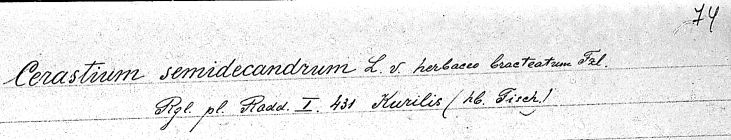 74
Cerastium semidecandrum L. v. herbaceo bracteatum Fzl.
Rgl. pl. Radd. I. 431 Kurilis (hb. Fisch.)